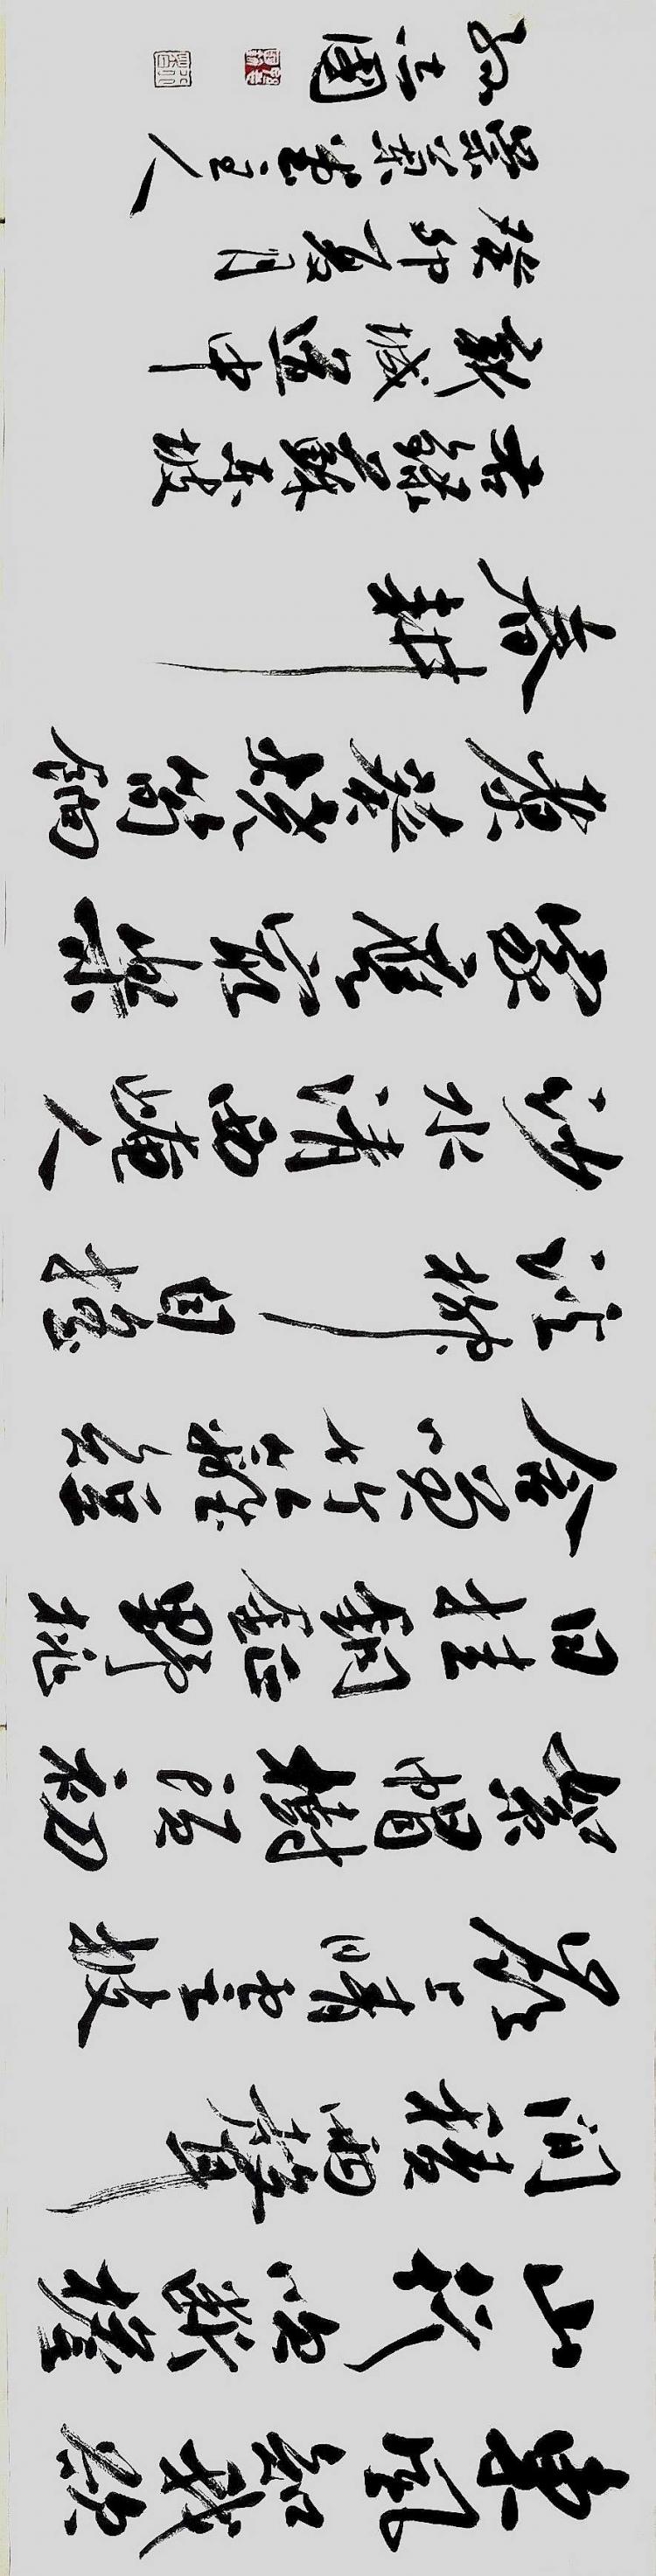 東風知我欲
山行吹斷檐
間積雨聲
嶺上晴雲披
絮帽樹頭初
日挂銅鉦野桃
含笑竹籬短
溪柳自搖
沙水清西崦人
家應最樂
煮葵燒筍餉
春耕
右錄蘇東坡
新城道中
癸卯夏月
主人